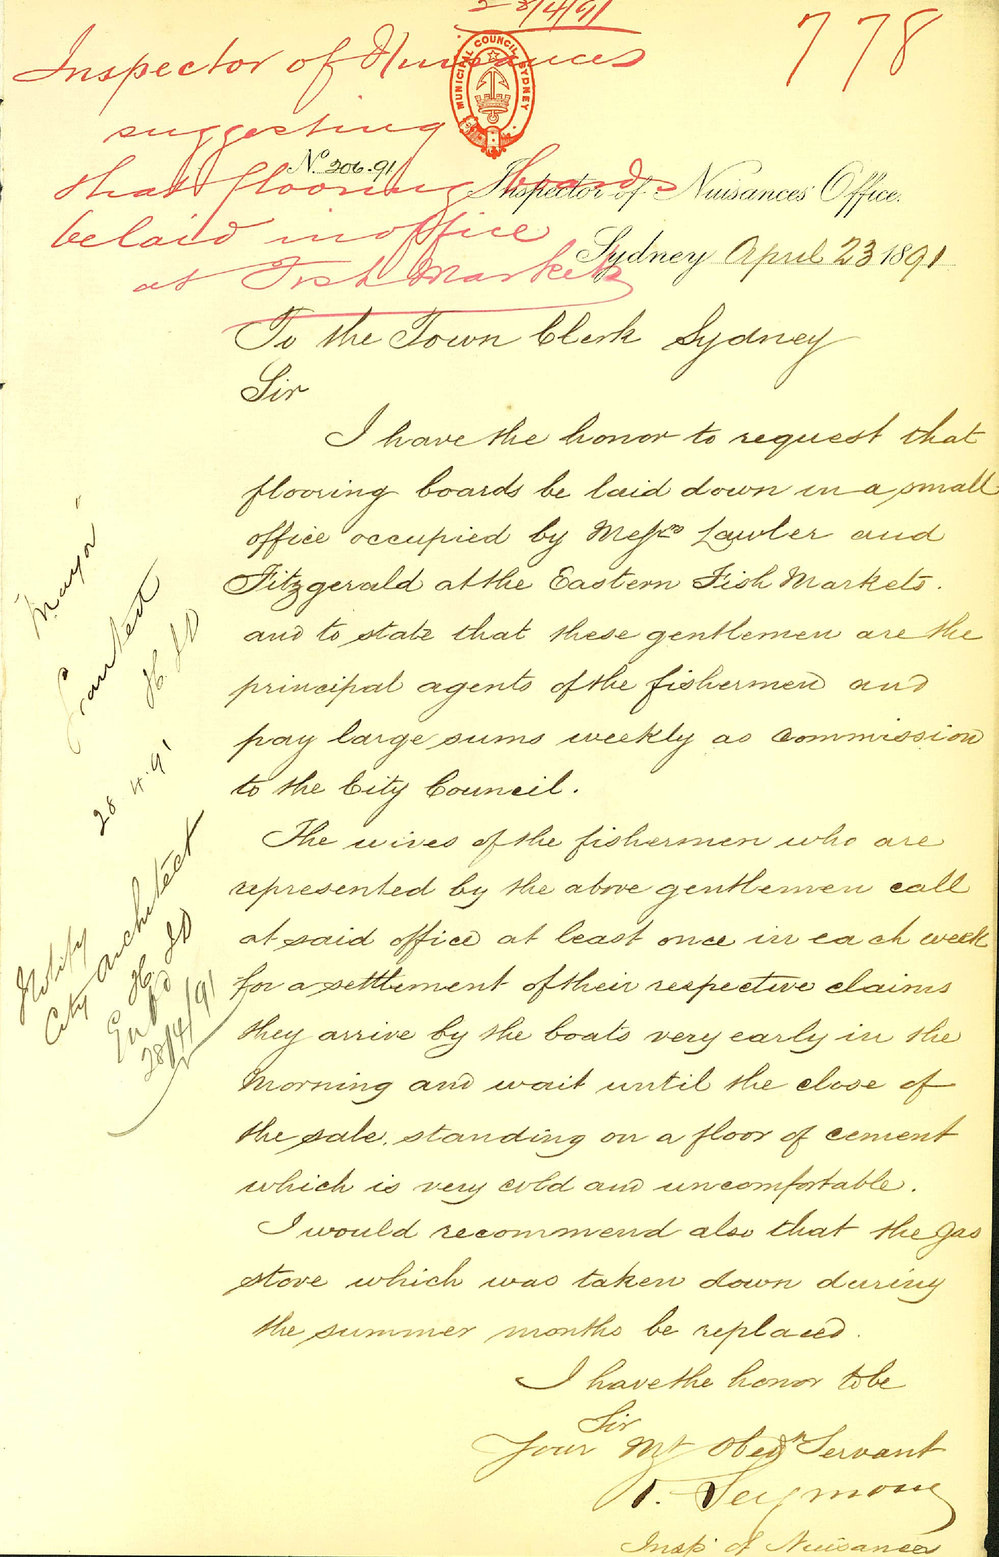 28/4/91
778
Inspector of Nuisances
suggesting
that flooring boards
be laid in office
at Fish Markets
MUNICIPAL COUNCIL SYDNEY
No. 206.91
Inspector of Nuisances Office.
Sydney April 23 1891
To the Town Clerk Sydney
Sir
I have the honor to request that
flooring boards be laid down in a small
office occupied by Messrs Lawler and
Fitzgerald at the Eastern Fish Markets.
and to state that these gentlemen are the
principal agents of the fishermen and
pay large sums weekly as commission
to the City Council.
The wives of the fishermen who are
represented by the above gentlemen call
at said office at least once in each week
for a settlement of their respective claims
they arrive by the boats very early in the
morning and wait until the close of
the sale. standing on a floor of cement
which is very cold and uncomfortable.
I would recommend also that the gas
stove which was taken down during
the summer months be replaced.
I have the honor to be
Sir
Your Mt Obedt Servant
Seymour
Insp. of Nuisances
"Mayor"
Granted
28.4.91
Notify
City Architect
28/4/91